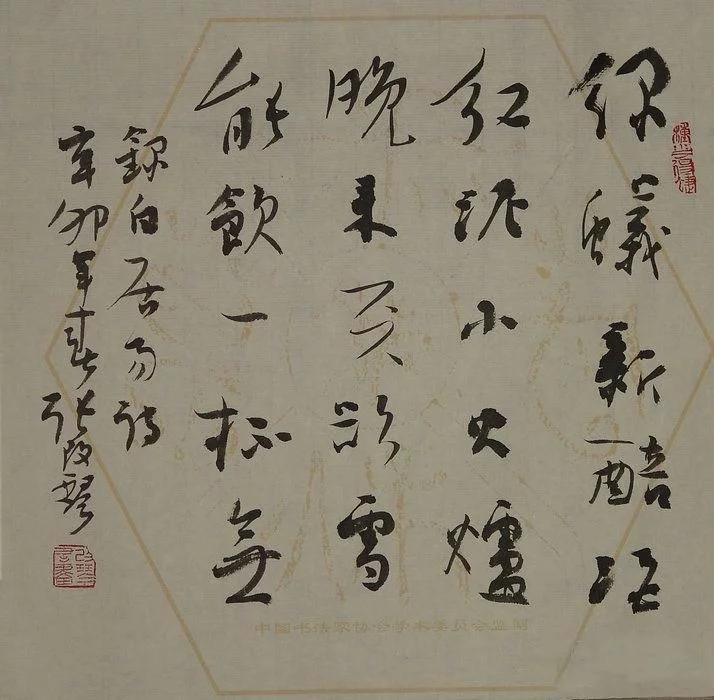 绿蟻新醅酒
红泥小火爐
晚来天欲雪
能飲一杯無
錄白居易诗
辛卯年春张改琴
中国书法家协会学术委员会监制